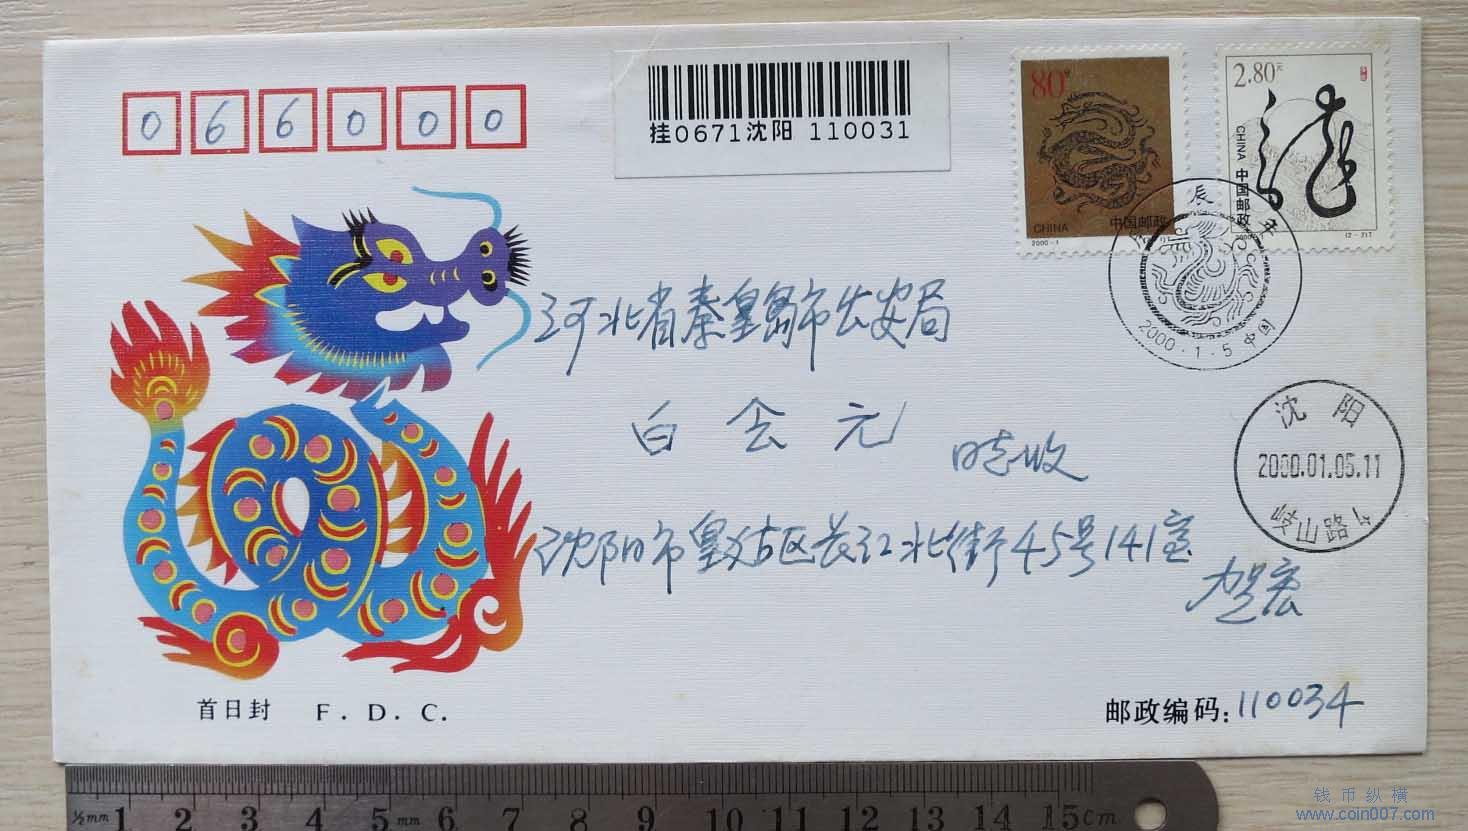 066000
挂0671沈阳 110031
80分
CHINA
中国邮政
2000-1
2.80元
CHINA 中国邮政
(2-2)T
龙
庚辰年
2000.1.5 中国
河北省秦皇岛市公安局
白会元
晓收
沈阳
2000.01.05.11
岐山路4
沈阳市皇姑区长江北街45号141室
贺宏
首日封 F.D.C.
邮政编码:110034
½mm 1 2 3 4 5mm 6 7 8 9 10 11 12 13 14 15cm
钱币纵横
www.coin007.com